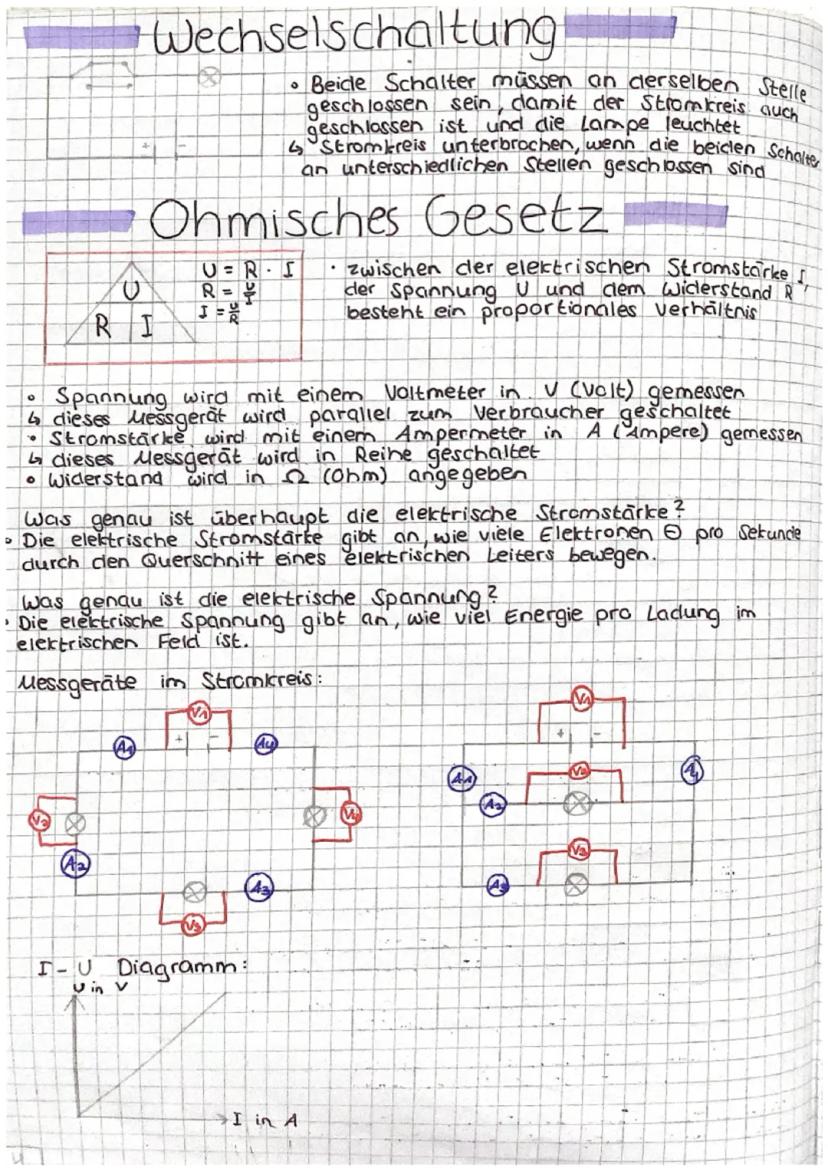 Wechselschaltung
• Beide Schalter müssen an derselben Stelle
geschlossen sein, damit der Stromkreis auch
geschlossen ist und die Lampe leuchtet
↳ Stromkreis unterbrochen, wenn die beiden Schalter
an unterschiedlichen Stellen geschlossen sind
+ -
Ohmisches Gesetz
U
R I
U = R · I
R = U/I
I = U/R
• zwischen der elektrischen Stromstärke I,
der Spannung U und dem Widerstand R
besteht ein proportionales Verhältnis
• Spannung wird mit einem Voltmeter in V (Volt) gemessen
↳ dieses Messgerät wird parallel zum Verbraucher geschaltet
• Stromstärke wird mit einem Ampermeter in A (Ampere) gemessen
↳ dieses Messgerät wird in Reihe geschaltet
• Widerstand wird in Ω (Ohm) angegeben
Was genau ist überhaupt die elektrische Stromstärke?
• Die elektrische Stromstärke gibt an, wie viele Elektronen ⊖ pro Sekunde
durch den Querschnitt eines elektrischen Leiters bewegen.
Was genau ist die elektrische Spannung?
• Die elektrische Spannung gibt an, wie viel Energie pro Ladung im
elektrischen Feld ist.
Messgeräte im Stromkreis:
V1
+ -
A1
A4
V2
V4
A2
A3
V3
V1
+ -
A1
V2
A4
A2
V3
A3
I - U Diagramm:
U in V
I in A